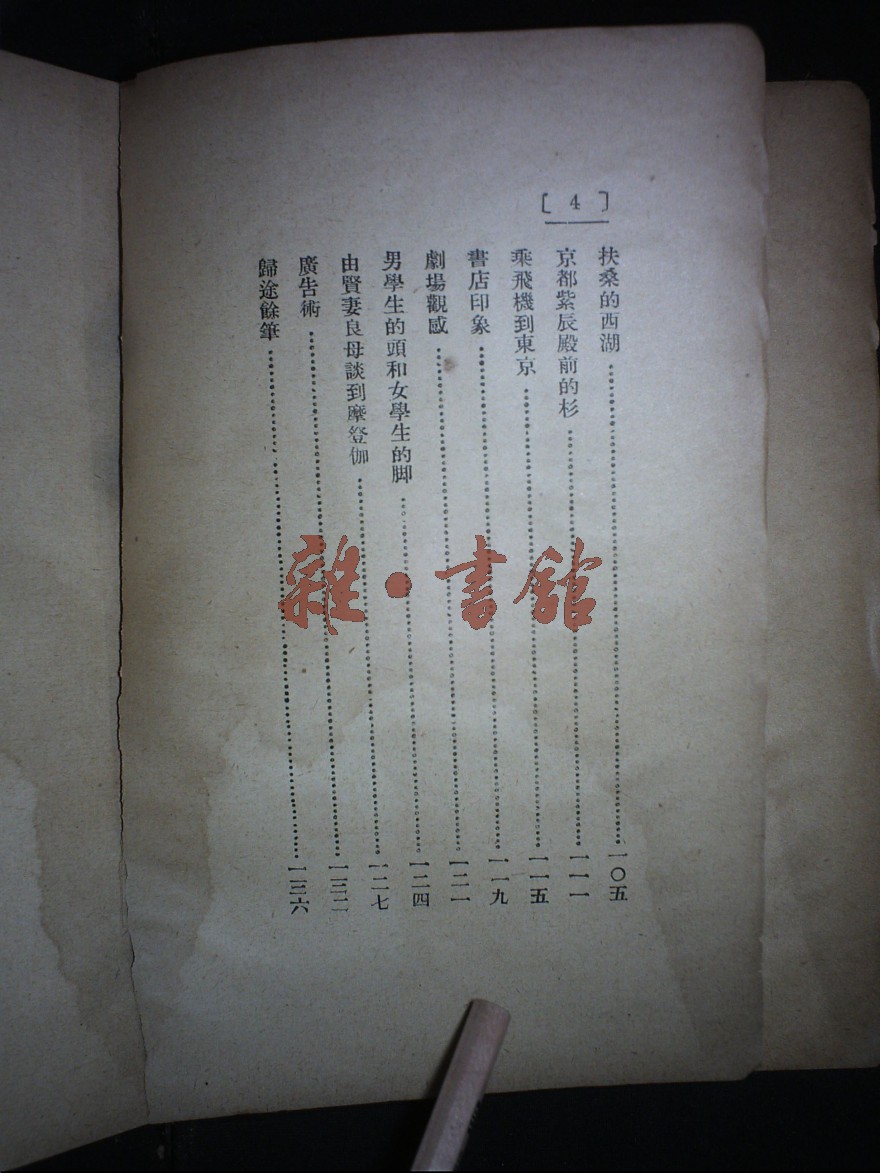 [ 4 ]
扶桑的西湖……一〇五
京都紫辰殿前的杉……一一一
乘飛機到東京……一一五
書店印象……一一九
劇場觀感……一二一
男學生的頭和女學生的脚……一二四
由賢妻良母談到摩登伽……一二七
廣告術……一三二
歸途餘筆……一三六
雜·書館